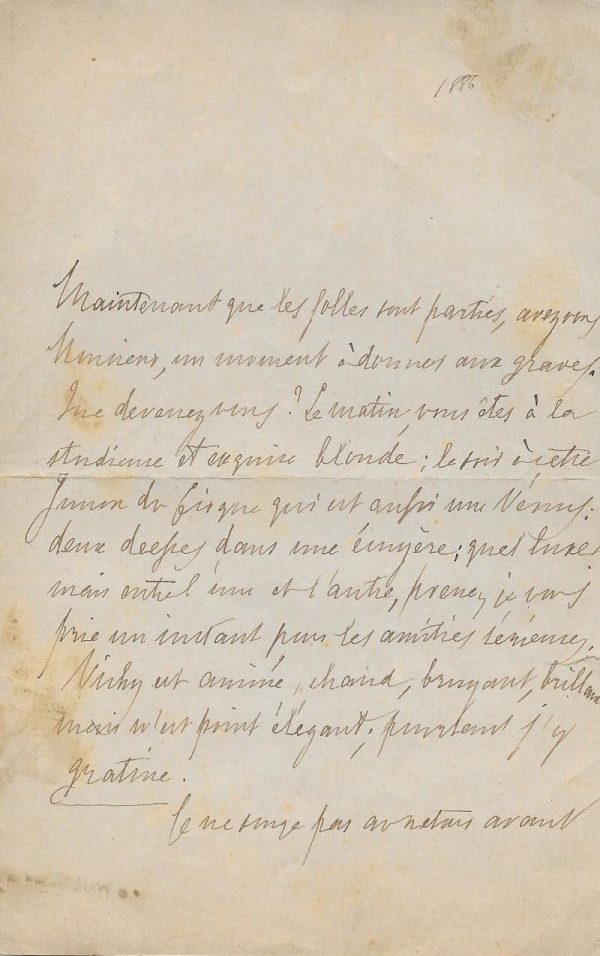 1886
Maintenant que les folles sont parties, avez vous
Monsieur, un moment à donner aux graves.
Que devenez vous? Le matin, vous êtes à la
studieuse et exquise blonde; le soir à cette
Junon du Cirque qui est aussi une Vénus.
deux deesses dans une écuyère; quel luxe
mais entre l'une et l'autre, prenez je vous
prie un instant pour les amitiés sérieuses.
Vichy est animé, chaud, bruyant, brillant
mais n'est point élégant; pourtant j'y
gratine.
Je ne songe pas au retour avant